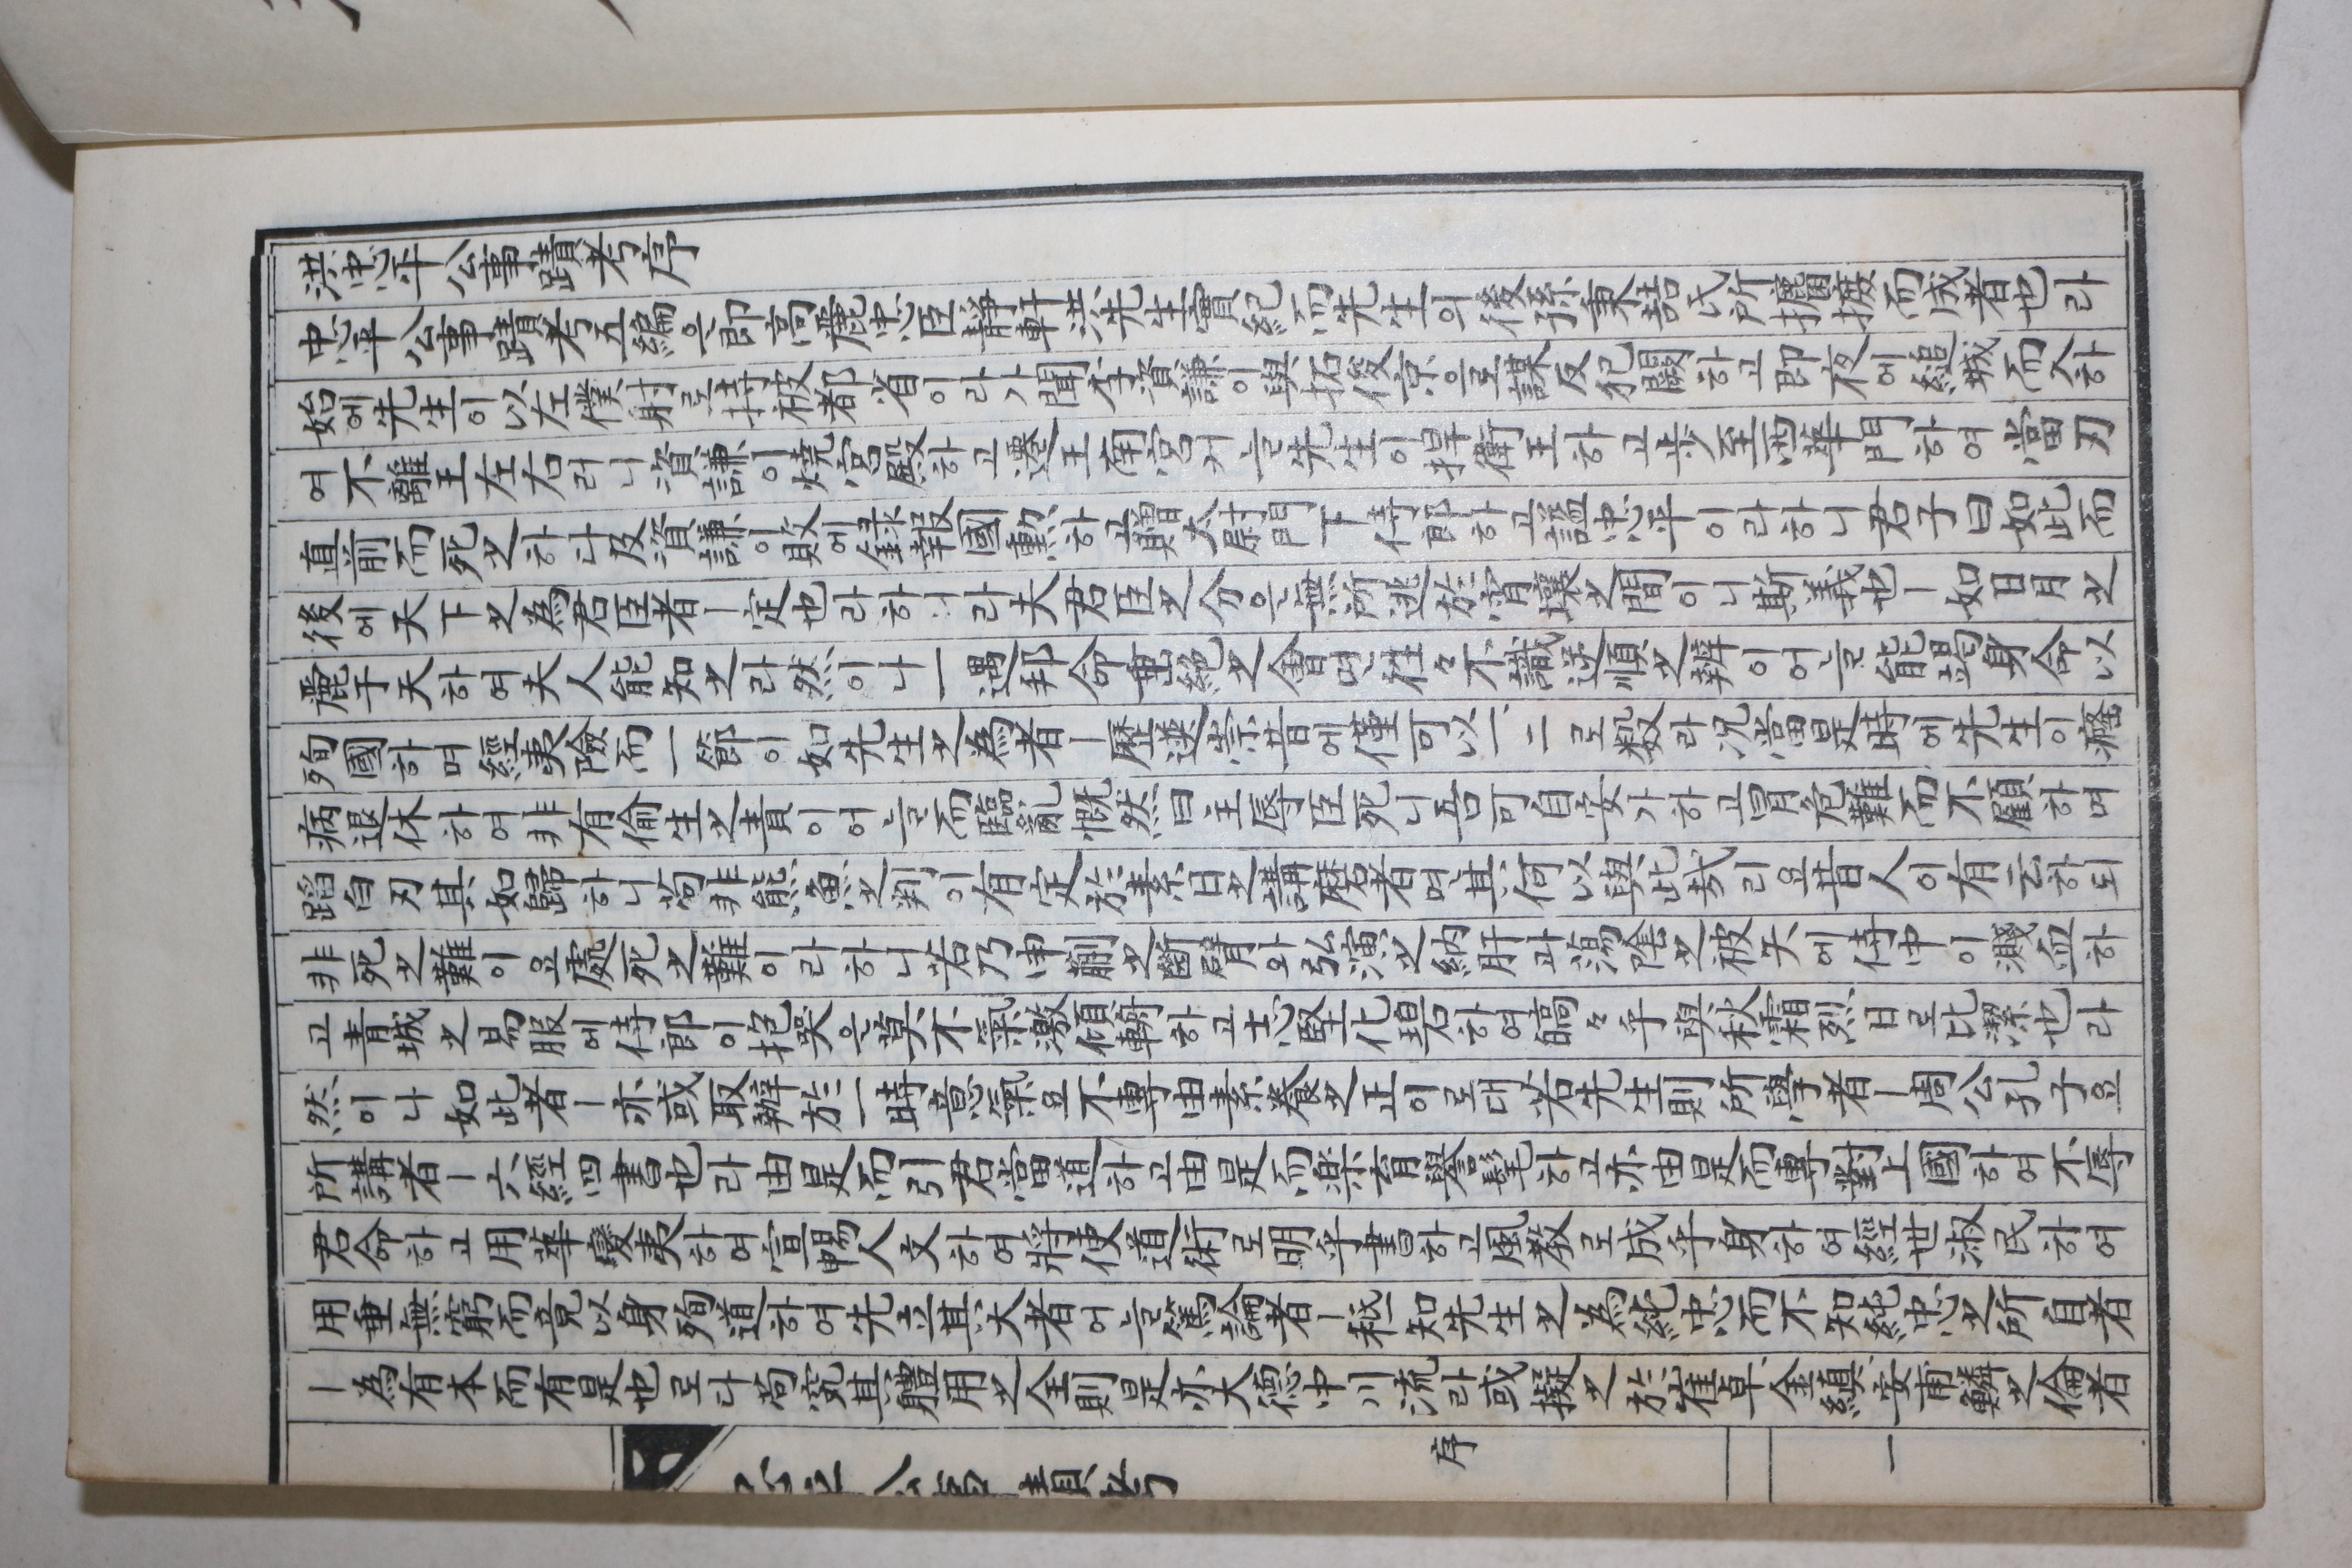 洪忠平公事蹟考序
忠平公事蹟考五編은即高麗忠臣靜軒洪先生實紀而先生의後孫秉喆氏所攟摭而成者也라
始에先生이以左僕射로持被都省이라가聞李資謙이與拓俊京으로謀反犯闕하고即夜에縋城而入하
여不離王左右러니資謙이燒宮殿하고遷王南宮커늘先生이捍衛王하고步至西華門하여當刃
直前而死之하나及資謙이敗에錄報國勳하고贈大尉門下侍郎하고諡忠平이라하니君子曰如此而
後에天下之為君臣者ㅣ定也라하니라夫君臣之分은無所逃於霄壤之間이니斯義也ㅣ如日月之
麗乎天하여夫人能知之라然이나一遇邦命軋絕之會면往々不識逆順之辨이어늘能竭身命以
殉國하며經夷險而一節이如先生之為者ㅣ歷選崇昔에僅可以一二로數라况當是時에先生이癃
病退休하여非有偷生之責이어늘而臨亂慨然曰主辱臣死니吾可自安가하고冒危難而不顧하며
蹈白刃其如歸하니苟非熊魚之判이有定於素日之講磨者면其何以與此哉리요昔人이有云하되
非死之難이요處死之難이라하니若乃申蒯之斷臂와弘演之納肝과蕩陰之被矢에侍中이濺血하
고青城之易服에侍郎이抱哭은莫不氣激傾輈하고志堅化碧하여皜々乎與秋霜烈日로比潔也라
然이나如此者ㅣ亦或取辦於一時意氣요不專由素養之正이로대若先生則所學者ㅣ周公孔子요
所講者ㅣ六經四書也라由是而引君當道하고由是而樂育譽髦하고亦由是而專對上國하여不辱
君命하고用華變夷하여宣暢人文하여將使道術로明乎書하고風教로成乎身하여經世淑民하여
用垂無窮而竟以身殉道하여先立其大者어늘篤論者ㅣ秖知先生之為純忠而不知純忠之所自者
ㅣ為有本而有是也로다苟究其體用之全則是亦大德中川流라或擬之於崔卓金縝安甫鱗之倫者
公事蹟考
序
一